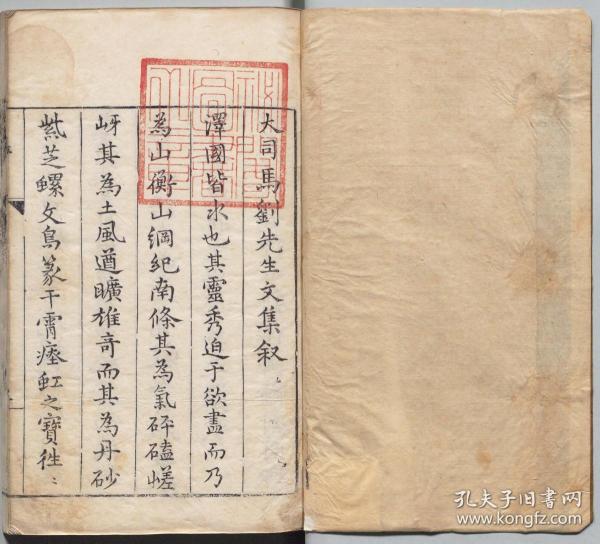 大司馬劉先生文集叙
澤國皆水也其靈秀迫于欲盡而乃
為山衡山綱紀南條其為氣砰磕嵯
岈其為土風遒曠雄奇而其為丹砂
紫芝螺文鳥篆干霄瘞虹之寶徃〻
孔夫子旧書网
www.kongfz.com